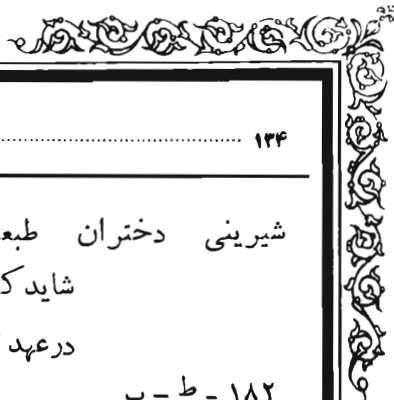 ۱۳۴
شیرینی دختران
شاید
درعهد
۱۸۲ - ط - ب